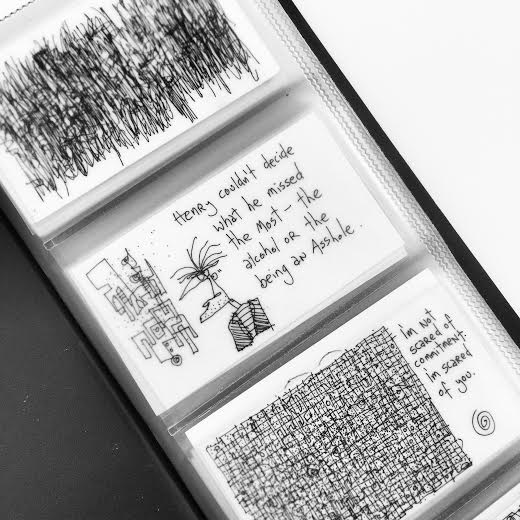 Henry couldn't decide
what he missed
the most – the
alcohol or the
being an Asshole.
I'm not
scared of
commitment.
I'm scared
of you.